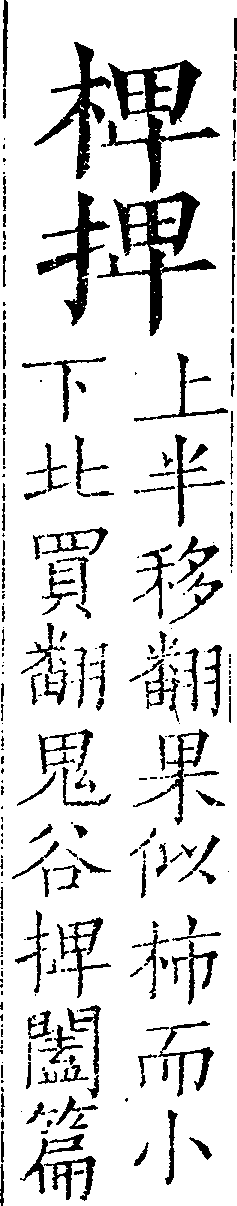 椑捭
上半移翻果似柿而小
下北買翻鬼谷捭闔篇